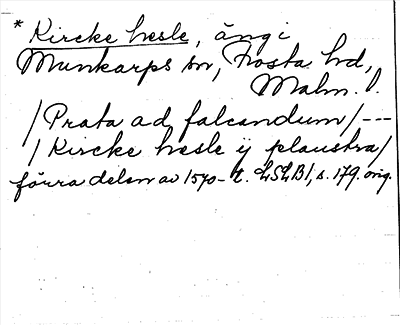 * Kircke hesle, äng i
Munkarps sn, Frosta hd,
Malm. l.
/Prata ad falcandum/---
/Kircke hesle ij plaustra/
förra delen av 1500-t. LSLB1, s. 179. orig.